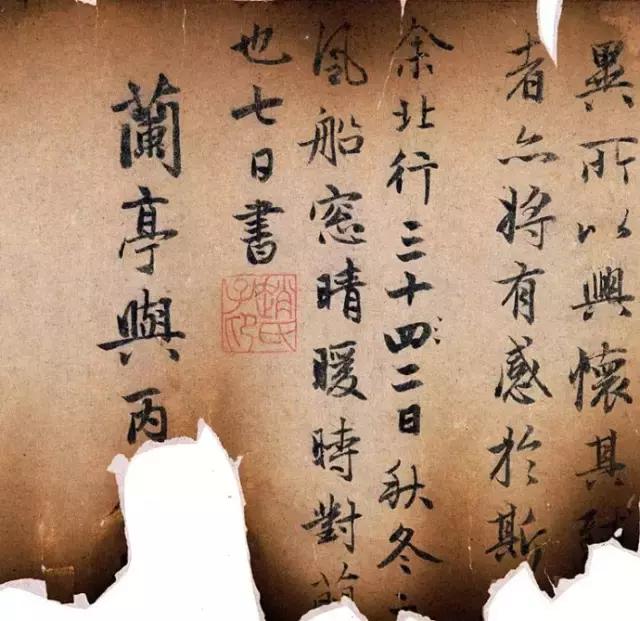 異所以興懷其致
者亦將有感於斯
余北行三十四二日秋冬
風船窓晴暖時對
也七日書
趙氏子昂
蘭亭與丙